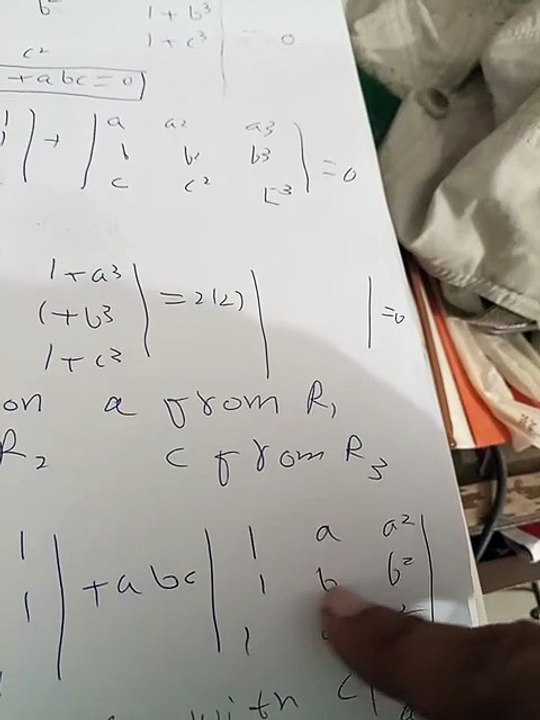 b² 1+b³
1+c³ = 0
c²
+abc=0
1 | + | a a² a3 |
1 b b² b3 | = 0
c c² c3
1+a3
(+b3 | = 2(2) | | = 0
1+c3
on a from R1
R2 c from R3
1 | 1 a a² |
1 | + abc | 1 b b² |
1
with C1